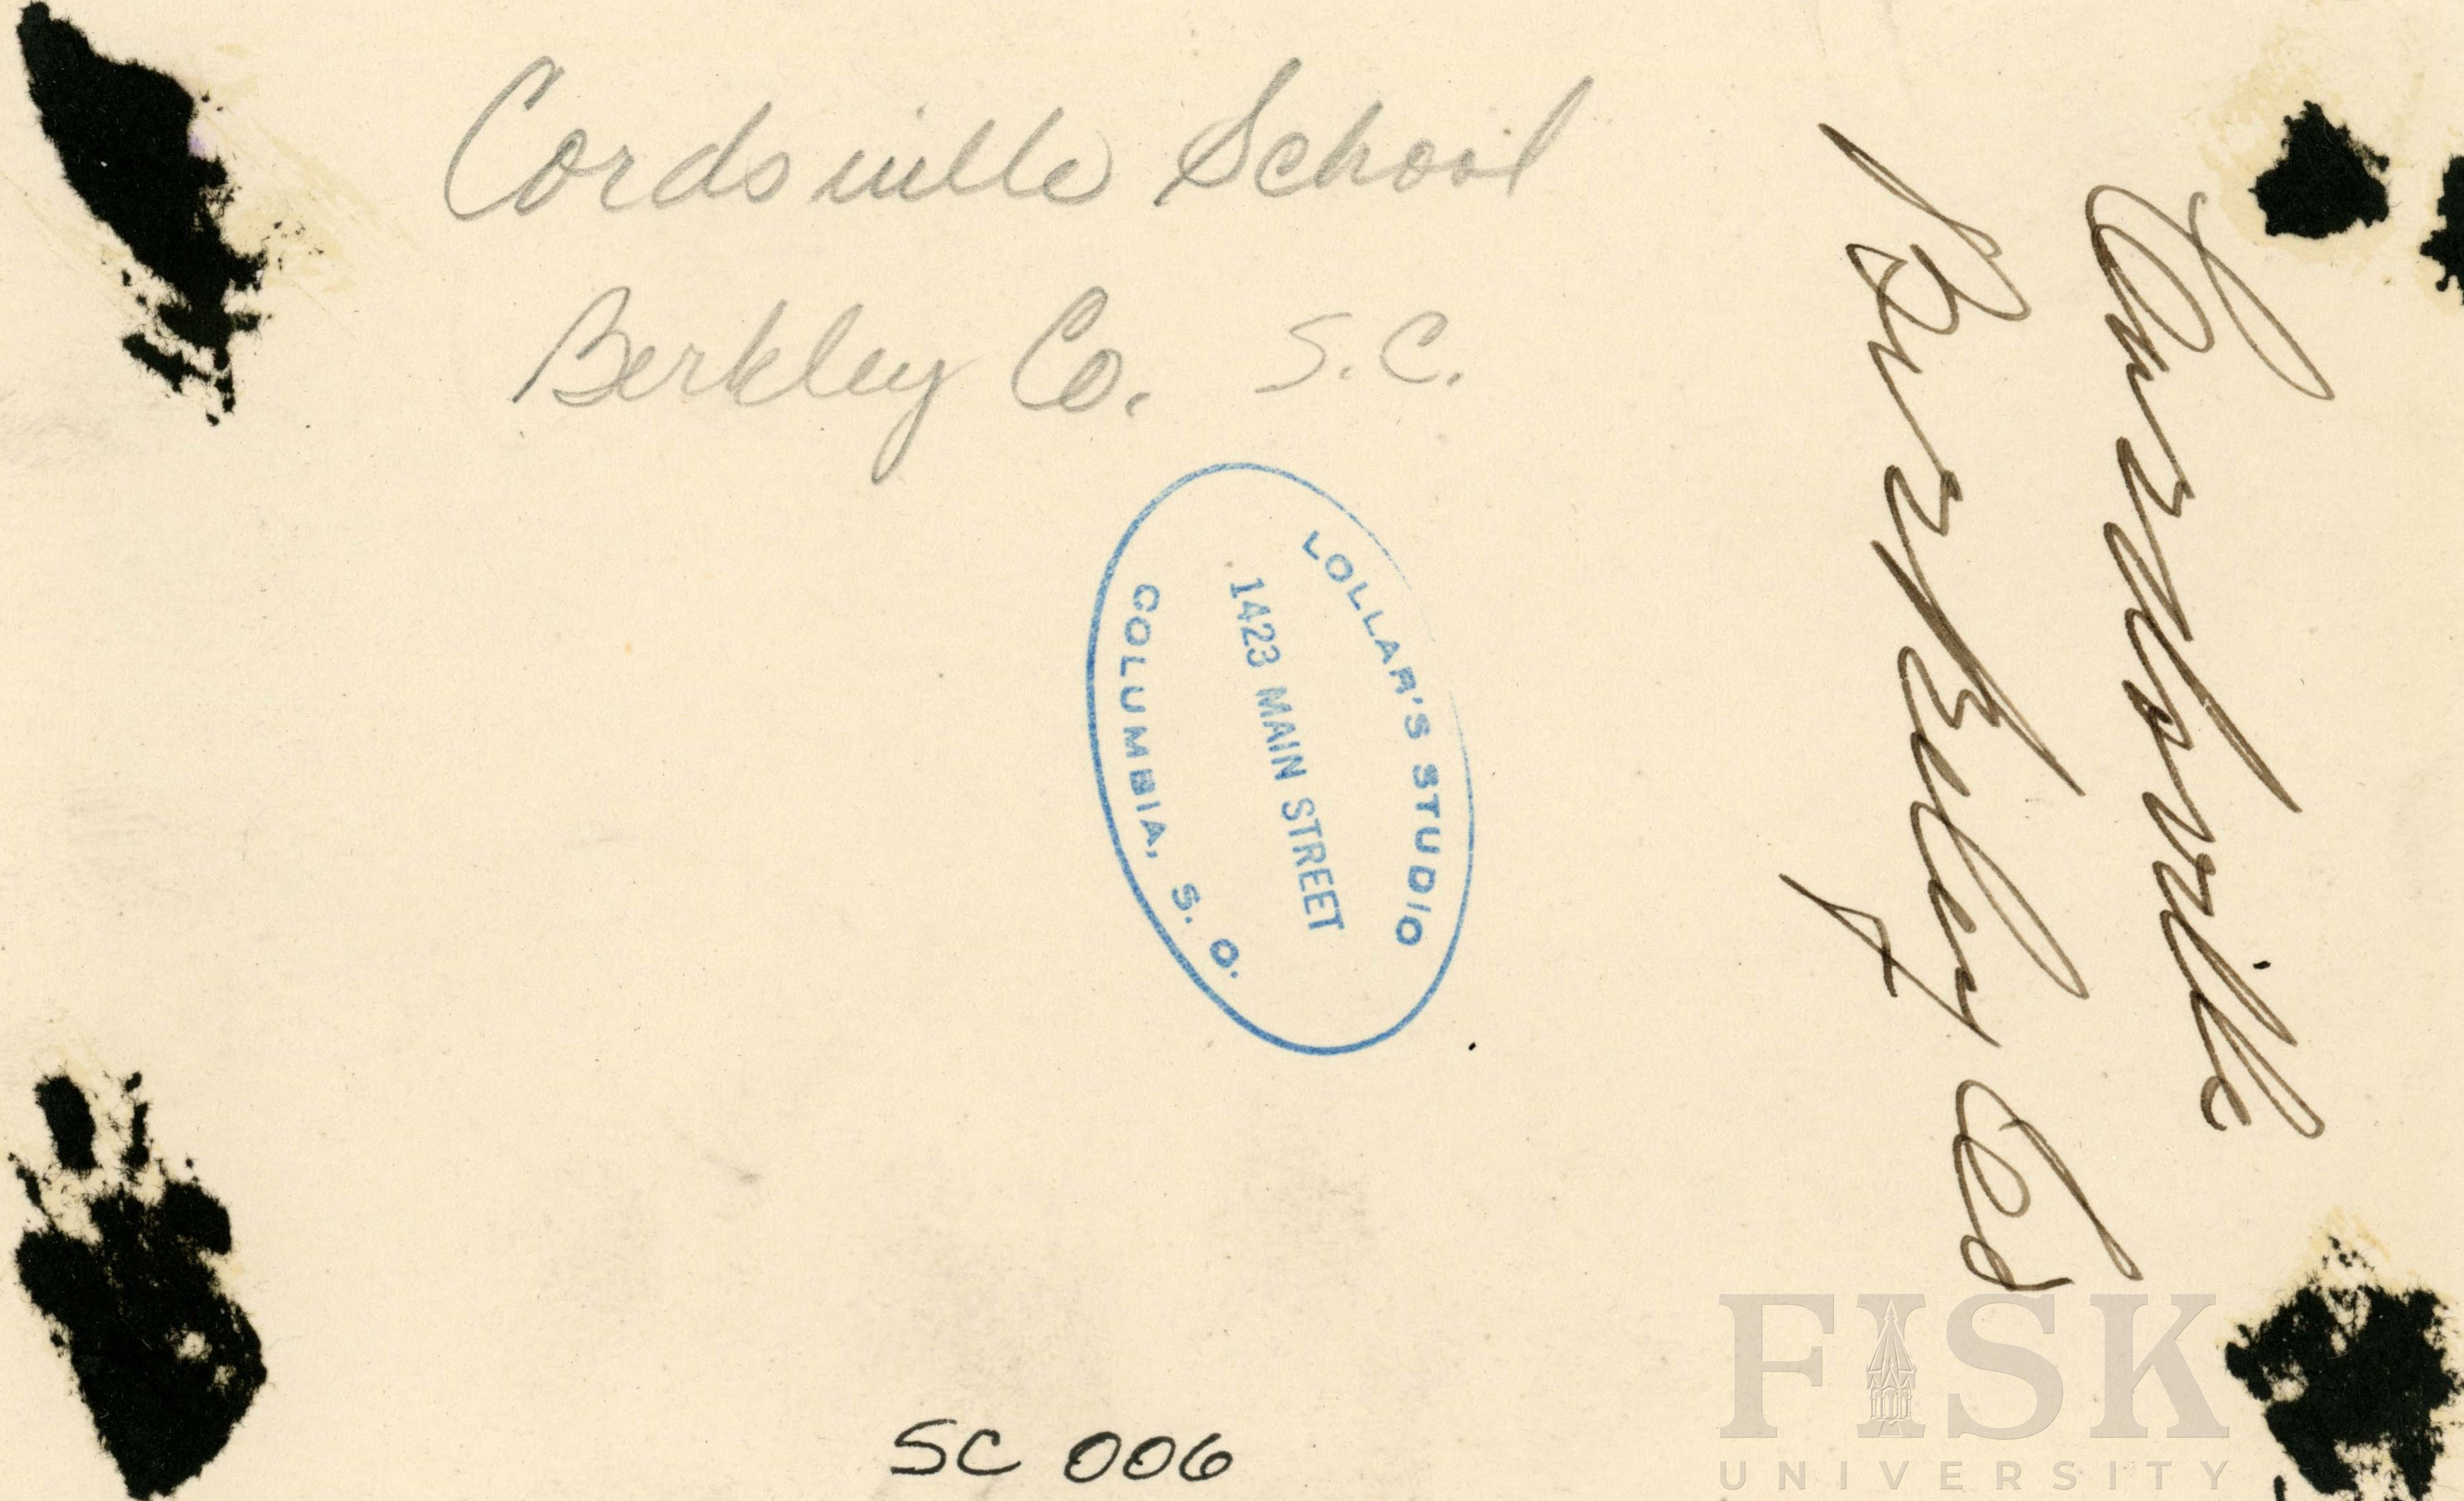 Cordsville School
Berkley Co. S.C.
LOLLAR'S STUDIO
1423 MAIN STREET
COLUMBIA, S. C.
Cordsville
Berkeley Co
SC 006
FISK
UNIVERSITY